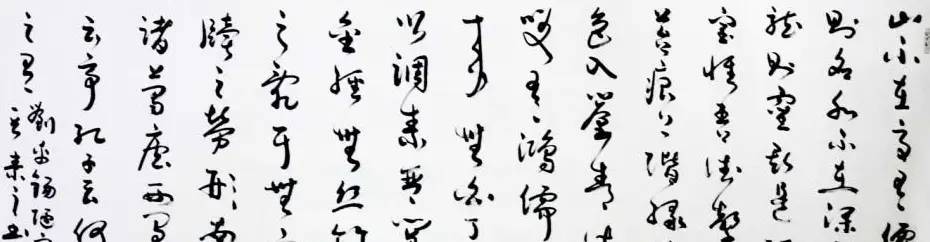 山不在高有僊
則名水不在深
龍則靈斯是
室惟吾德馨
苔痕上階緑
色入簾青
笑有鴻儒
來無白丁
以調素琴
金經無絲竹
之亂耳無
牘之勞形南
諸葛廬西蜀
云亭孔子云何
之有
劉禹錫陋